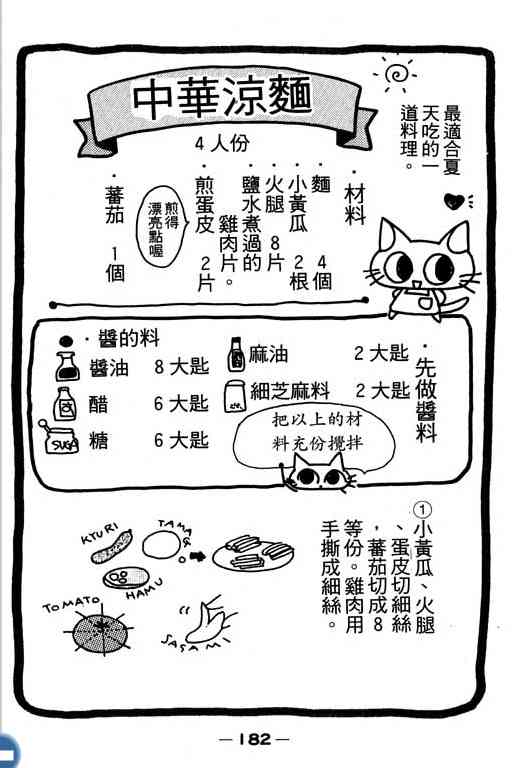 中華涼麵
4人份
最適合夏
天吃的一
道料理。
・材料
・麵 4個
・小黃瓜 2根
・火腿 8片
・鹽水煮過的
雞肉片。
・煎蛋皮 2片
煎得
漂亮點喔
・蕃茄 1個
・先做醬料
・醬的料
醬油 8大匙
醋 6大匙
SUGA
糖 6大匙
麻油 2大匙
細芝麻料 2大匙
把以上的材
料充份攪拌
①小黃瓜、火腿
、蛋皮切細絲
,蕃茄切成8
等份。雞肉用
手撕成細絲。
KYURI
TAMAG
HAMU
TOMATO
SASAMI
— 182 —